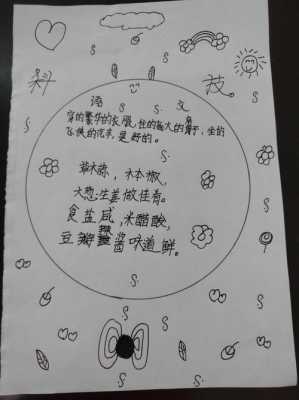 科 技
语 文
穿的繁华的衣服,住的高大的房子,坐的
飞快的汽车,是野的。
辣,木木椒,
大葱生姜做佳肴。
食盐咸,米醋酸,
豆瓣酱味道鲜。